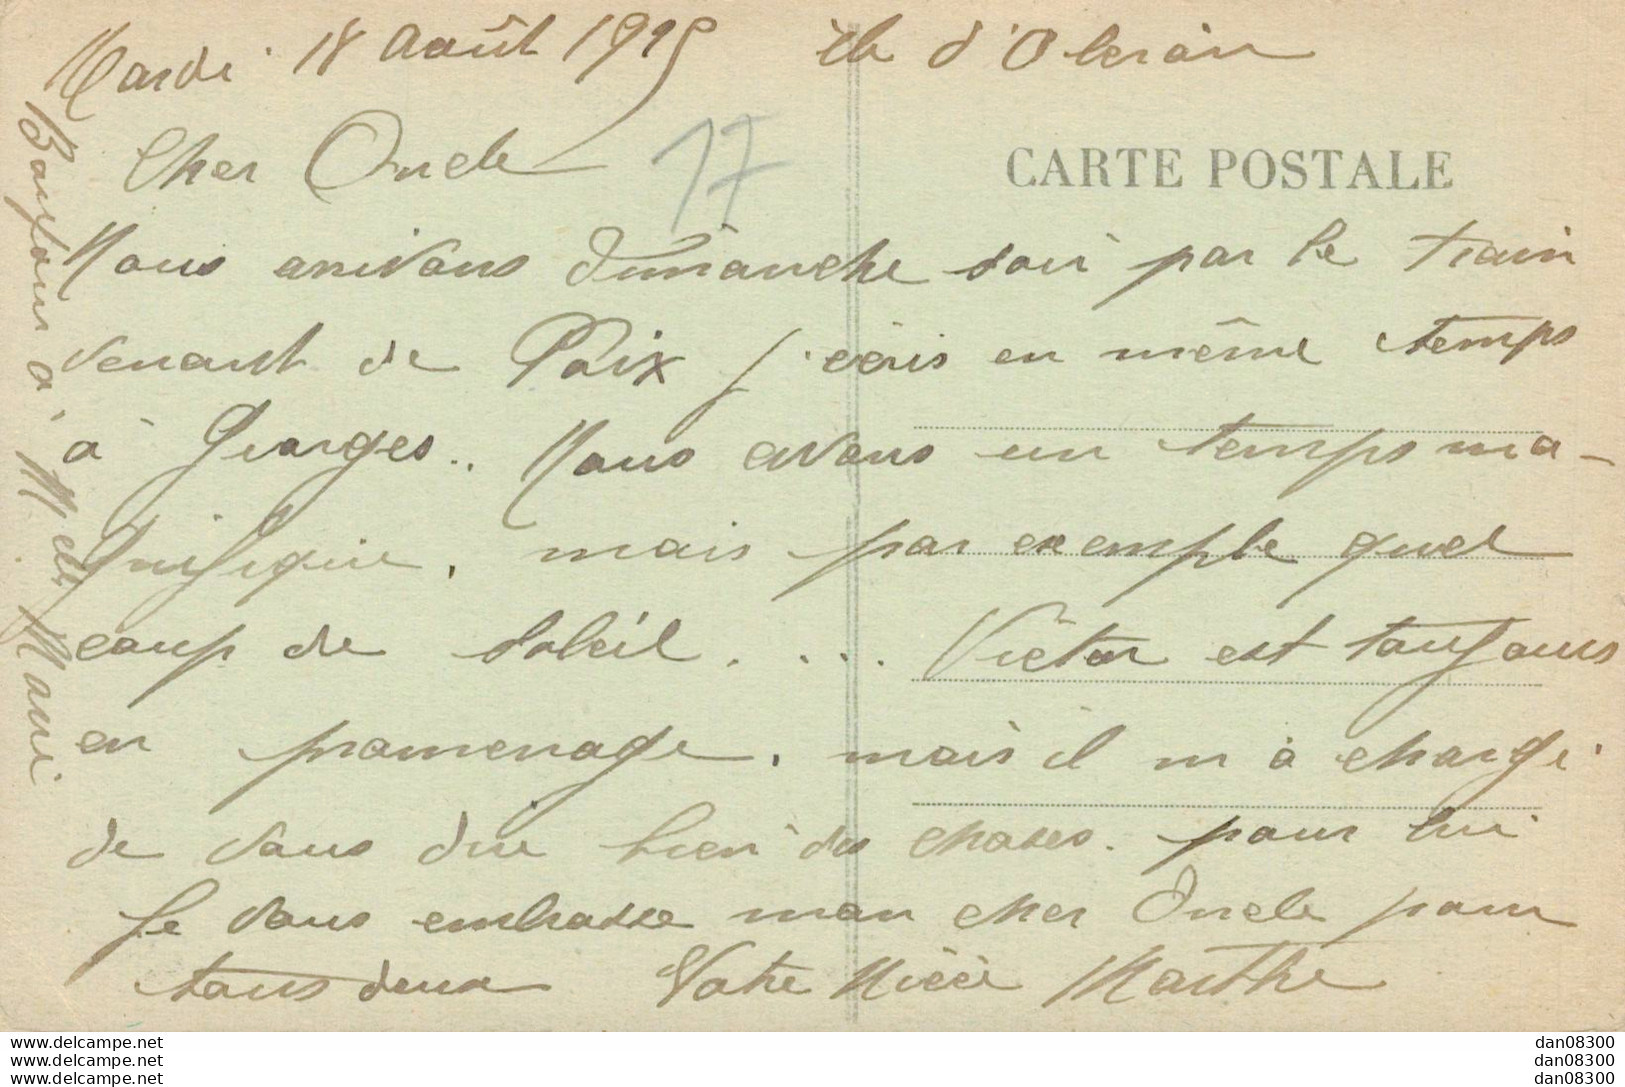 Mardi 18 Août 1925 île d'Oleron
Cher Oncle
17
CARTE POSTALE
Nous arrivons Dimanche soir par le train
venant de Paix j'écris en même temps
à Georges.. Nous avons un temps ma-
gnifique, mais par exemple quel
coup de soleil.... Victor est toujours
en promenage, mais il m'à chargé
de vous dire bien des choses. pour lui
Je vous embrasse mon cher Oncle pour
tous deux Votre Nièce Marthe
Bonjour à Melle Mani
dan08300 dan08300
dan08300 dan08300
dan08300 dan08300